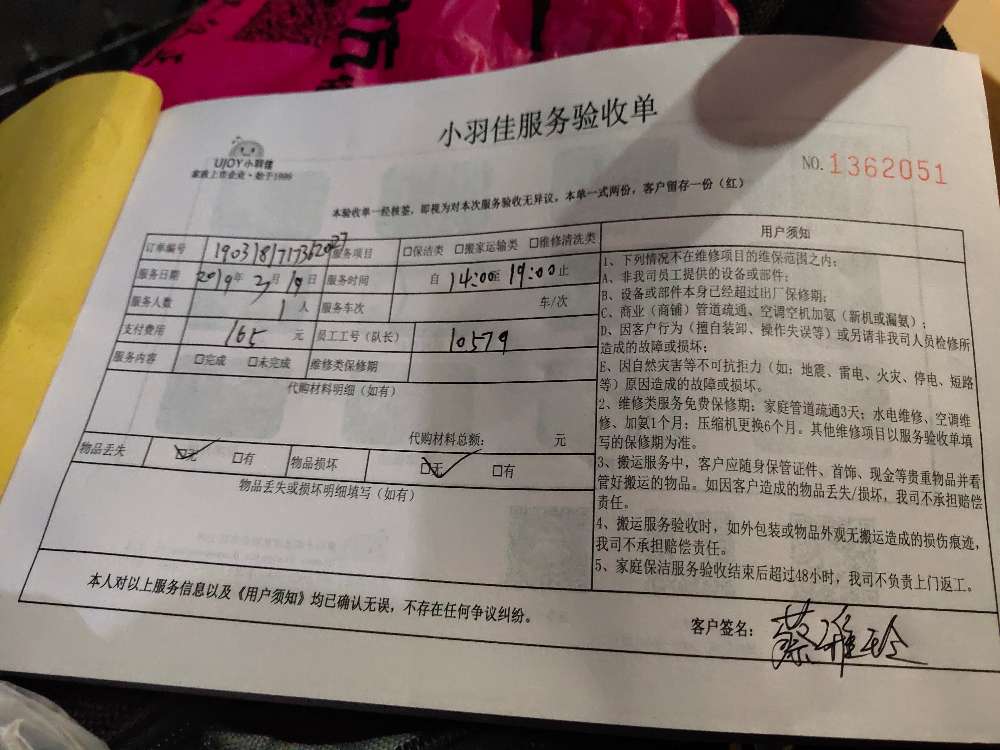 小羽佳服务验收单
UJOY小羽佳
家政上市企业·始于1999
NO.1362051
本验收单一经核签，即视为对本次服务验收无异议，本单一式两份，客户留存一份（红）
订单编号 服务项目 □保洁类 □搬家运输类 □维修清洗类
服务日期 2019年3月19日 服务时间 自 14:00至 19:00止
服务人数 1人 服务车次 车/次
支付费用 165 元 员工工号（队长） 10579
服务内容 □完成 □未完成 维修类保修期
代购材料明细（如有）
代购材料总额： 元
物品丢失 □无 □有 物品损坏 □无 □有
物品丢失或损坏明细填写（如有）
用户须知
1、下列情况不在维修项目的维保范围之内：
A、非我司员工提供的设备或部件；
B、设备或部件本身已经超过出厂保修期；
C、商业（商铺）管道疏通、空调空机加氨（新机或漏氨）；
D、因客户行为（擅自装卸、操作失误等）或另请非我司人员检修所
造成的故障或损坏；
E、因自然灾害等不可抗拒力（如：地震、雷电、火灾、停电、短路
等）原因造成的故障或损坏。
2、维修类服务免费保修期：家庭管道疏通3天；水电维修、空调维
修、加氨1个月；压缩机更换6个月。其他维修项目以服务验收单填
写的保修期为准。
3、搬运服务中，客户应随身保管证件、首饰、现金等贵重物品并看
管好搬运的物品。如因客户造成的物品丢失/损坏，我司不承担赔偿
责任。
4、搬运服务验收时，如外包装或物品外观无搬运造成的损伤痕迹，
我司不承担赔偿责任。
5、家庭保洁服务验收结束后超过48小时，我司不负责上门返工。
本人对以上服务信息以及《用户须知》均已确认无误，不存在任何争议纠纷。
客户签名： 蔡雅玲